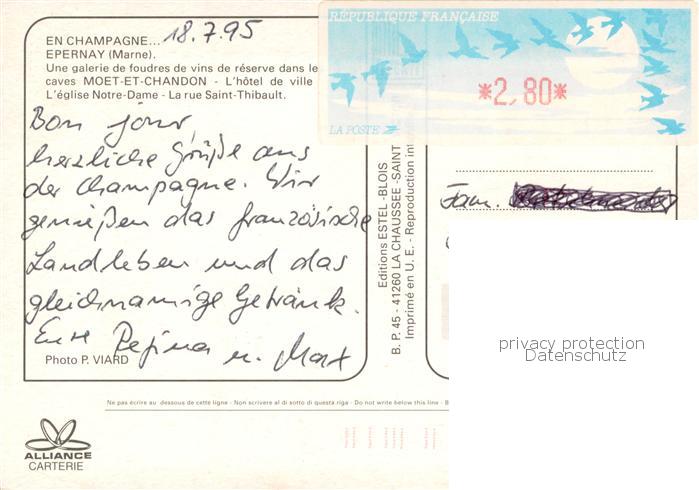 EN CHAMPAGNE...
18.7.95
EPERNAY (Marne).
Une galerie de foudres de vins de réserve dans le
caves MOET-ET-CHANDON - L'hôtel de ville
L'église Notre-Dame - La rue Saint-Thibault.
Bon jour,
herzliche Grüße aus
der Champagne. Wir
genießen das französische
Landleben und das
gleichnamige Getränk.
Eure Regina u. Max
Photo P. VIARD
RÉPUBLIQUE FRANÇAISE
*2,80*
LA POSTE
Editions ESTEL-BLOIS
B. P. 45 - 41260 LA CHAUSSEE-SAINT
Imprimé en U. E. - Reproduction int
Fam.
privacy protection
Datenschutz
Ne pas écrire au dessous de cette ligne - Non scrivere al di sotto di questa riga - Do not write below this line - B
ALLIANCE
CARTERIE